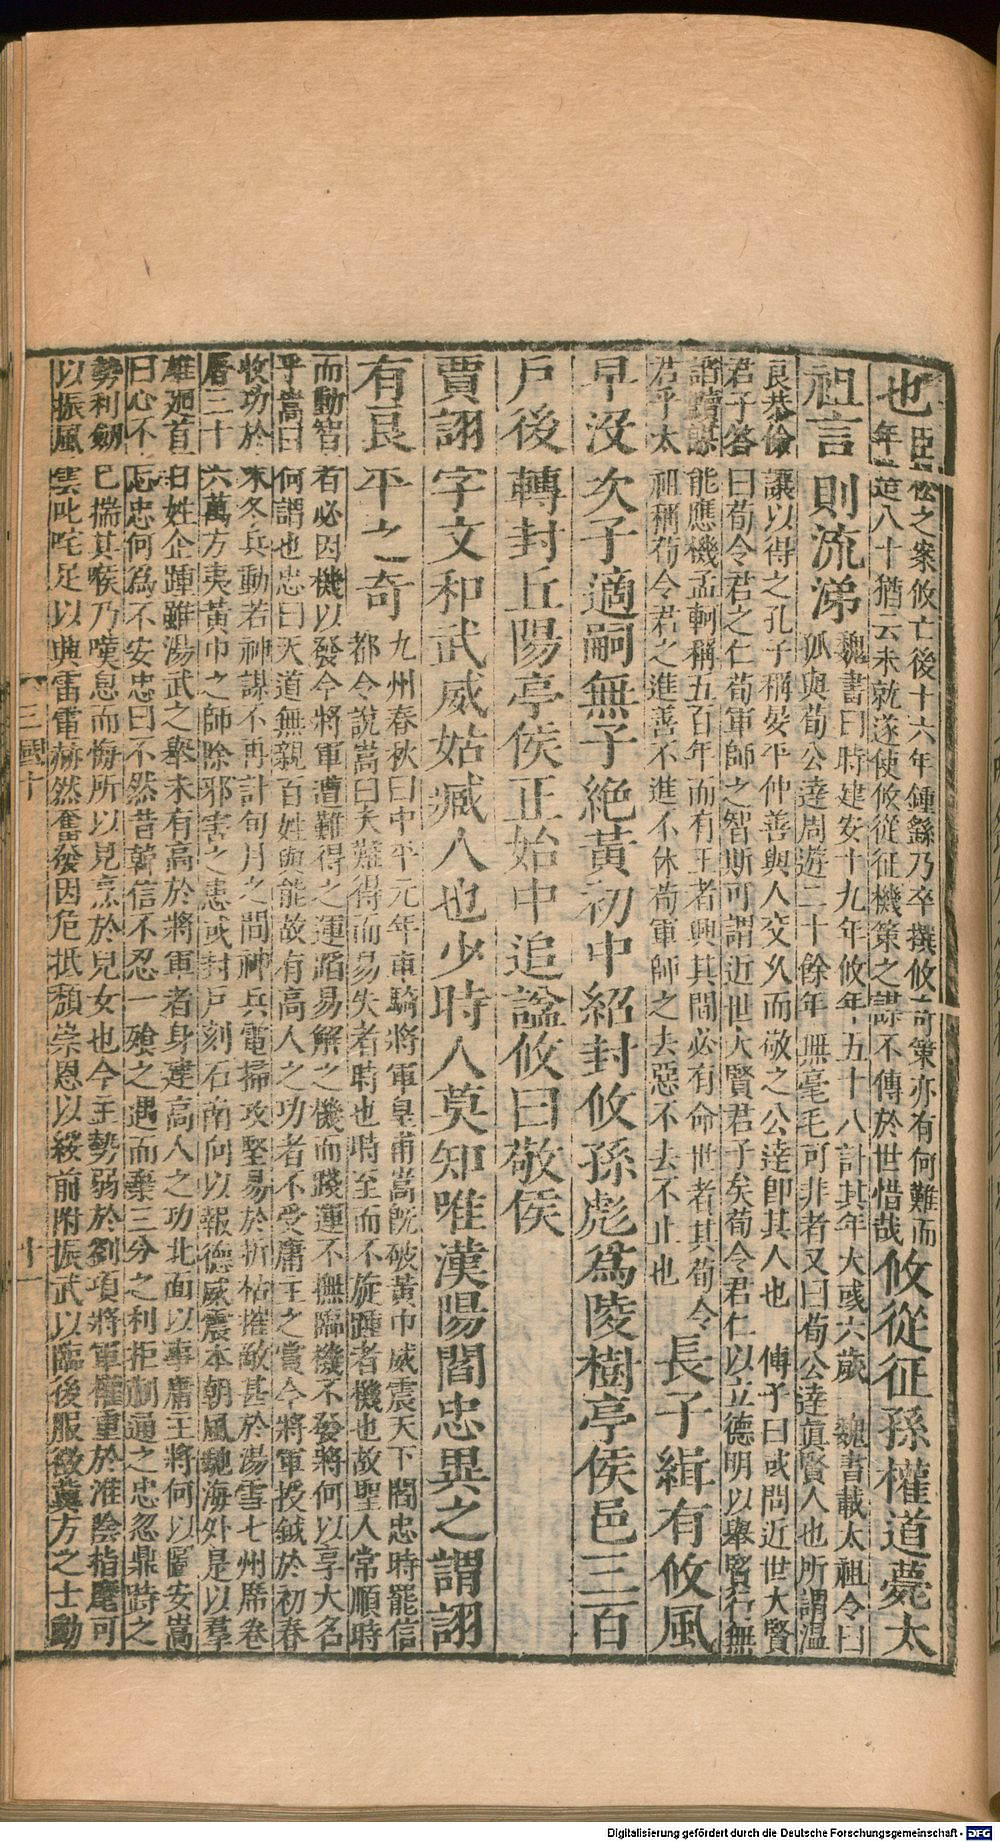 也臣松之案攸亡後十六年鍾繇乃卒撰攸奇策亦有何難而年造八十猶云未就遂使攸從征機策之謀不傳於世惜哉攸從征孫權道薨太
祖言則流涕魏書曰時建安十九年攸年五十八計其年大彧六歲 魏書載太祖令曰孤與荀公達周遊二十餘年無毫毛可非者又曰荀公達真賢人也所謂溫
良恭儉讓以得之孔子稱晏平仲善與人交久而敬之公達卽其人也 傅子曰或問近世大賢君子答曰荀令君之仁荀軍師之智斯可謂近世大賢君子矣荀令君仁以立德明以舉賢行無
諂黷謀能應機孟軻稱五百年而有王者興其間必有命世者其荀令君乎太祖稱荀令君之進善不進不休荀軍師之去惡不去不止也長子緝有攸風
早沒次子適嗣無子絶黃初中紹封攸孫彪爲陵樹亭侯邑三百
戶後轉封丘陽亭侯正始中追諡攸曰敬侯
賈詡字文和武威姑臧人也少時人莫知唯漢陽閻忠異之謂詡
有良平之奇九州春秋曰中平元年車騎將軍皇甫嵩旣破黃巾威震天下閻忠時罷信都令說嵩曰夫難得而易失者時也時至而不旋踵者機也故聖人常順時
而動智者必因機以發今將軍遭難得之運蹈易解之機而踐運不撫臨機不發將何以享大名乎嵩曰何謂也忠曰天道無親百姓與能故有高人之功者不受庸主之賞今將軍授鉞於初春
收功於末冬兵動若神謀不再計旬月之間神兵電掃攻堅易於折枯摧敵甚於湯雪七州席卷屠三十六萬方夷黃巾之師除邪害之患或封戶刻石南向以報德威震本朝風馳海外是以羣
雄迴首百姓企踵雖湯武之舉未有高於將軍者身建高人之功北面以事庸主將何以圖安嵩曰心不忘忠何爲不安忠曰不然昔韓信不忍一飱之遇而棄三分之利拒蒯通之忠忽鼎跱之
勢利劒已揣其喉乃嘆息而悔所以見烹於兒女也今主勢弱於劉項將軍權重於淮陰指麾可以振風雲叱咤足以興雷電赫然奮發因危抵頹崇恩以綏前附振武以臨後服徵冀方之士動
三國十
十一
Digitalisierung gefördert durch die Deutsche Forschungsgemeinschaft - DFG